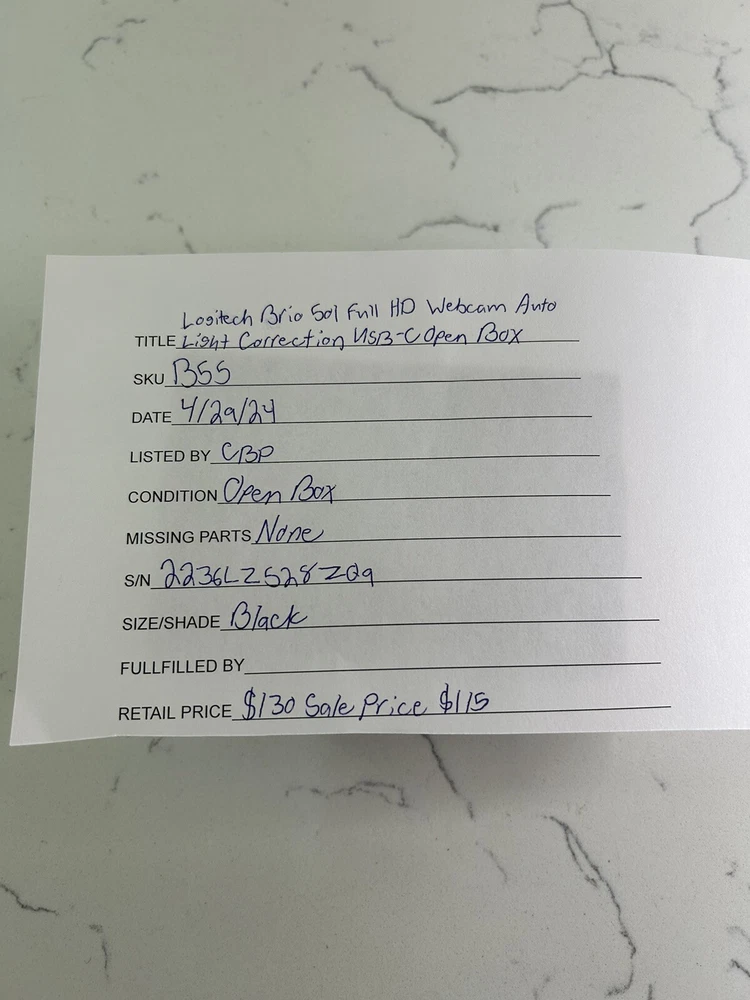 Logitech Brio 501 Full HD Webcam Auto
TITLE Light Correction USB-C Open Box
SKU B55
DATE 4/29/24
LISTED BY CBP
CONDITION Open Box
MISSING PARTS None
S/N 2236LZ528ZQ9
SIZE/SHADE Black
FULLFILLED BY
RETAIL PRICE $130 Sale Price $115